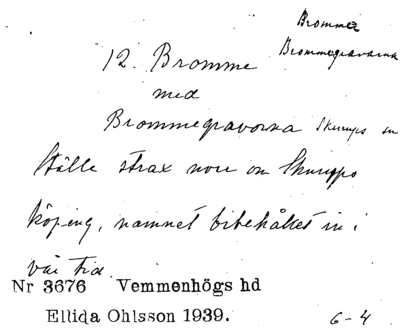 Bromme
Brommegravarna
12. Bromme
med
Brommegravorna Skurups sn
Ställe strax norr om Skurups
köping, namnet bibehållet in i
vår tid
Nr 3676 Vemmenhögs hd
Ellida Ohlsson 1939. 6-4